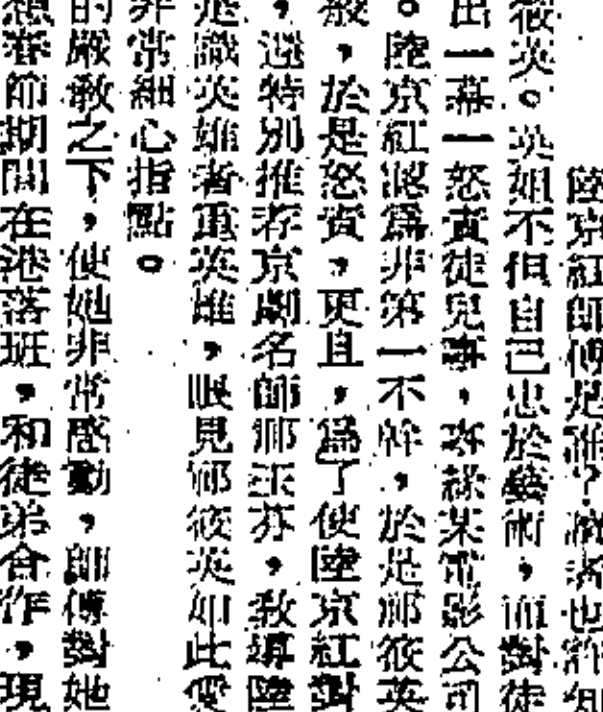 陸京紅師傅是誰？讀者也許知
筱英。英姐不但自己忠於藝術，而對徒
出一幕一怒責徒兒事，事緣某電影公司
。陸京紅認爲非第一不幹，於是鄧筱英
般，於是怒責，更且，爲了使陸京紅對
，還特別推荐京劇名師邢玉芬，教導陸
是識英雄者重英雄，眼見鄧筱英如此愛
非常細心指點。
的嚴敎之下，使她非常感動，師傅對她
想春節期間在港落班，和徒弟合作，現